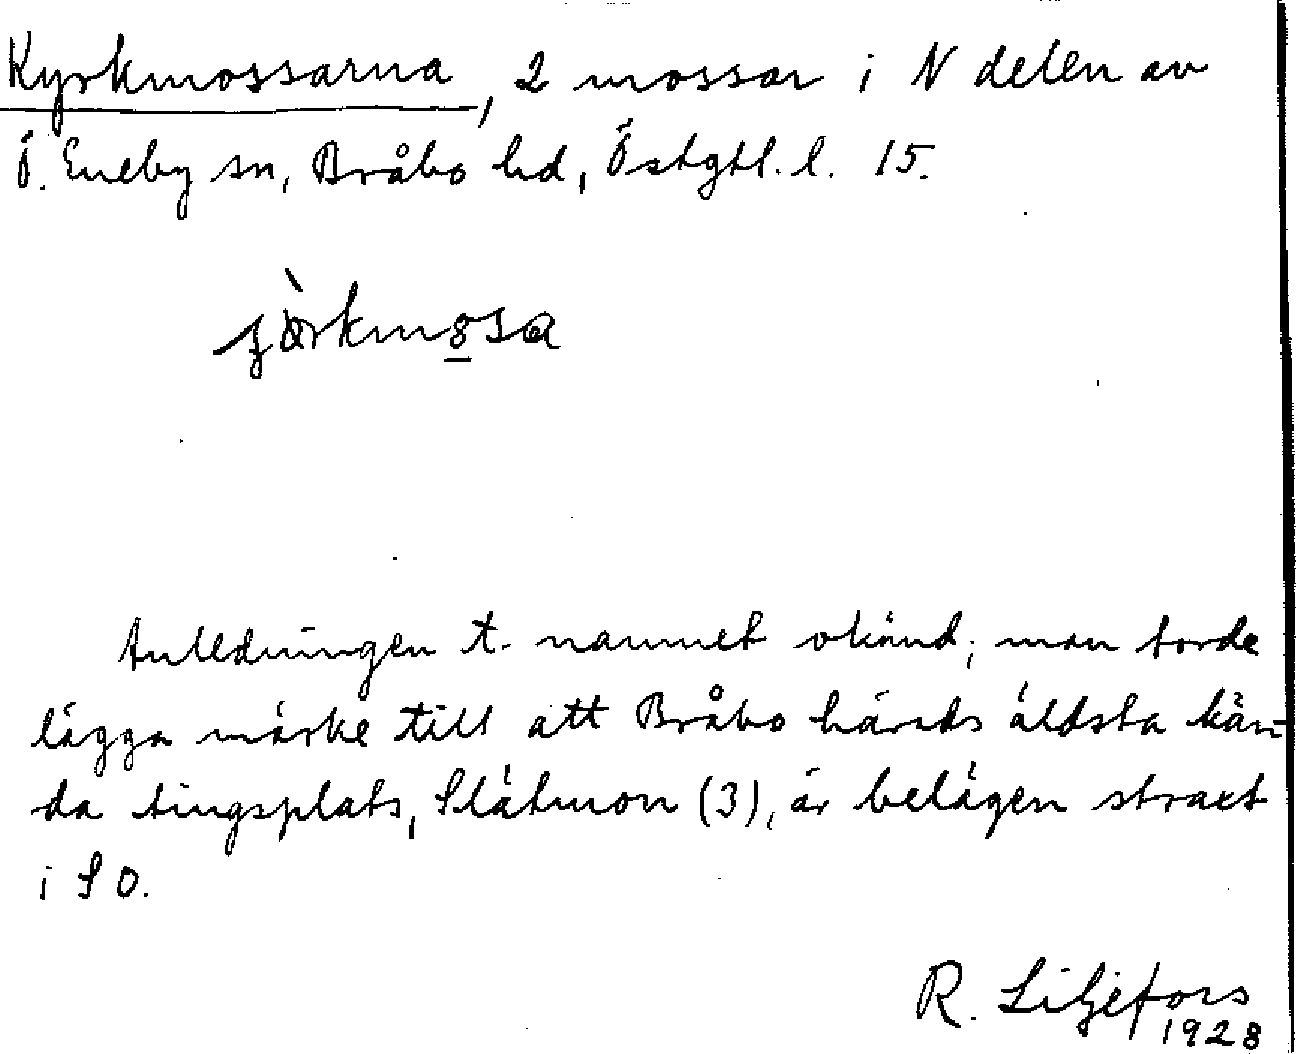 Kyrkmossarna, 2 mossar i N delen av
Ö. Eneby sn, Bråbo hd, Östgtl. l. 15.
Anledningen t. namnet okänd; man torde
lägga märke till att Bråbo härads äldsta kän-
da tingsplats, Slätmon (3), är belägen straxt
i S O.
R. Liljefors
1928